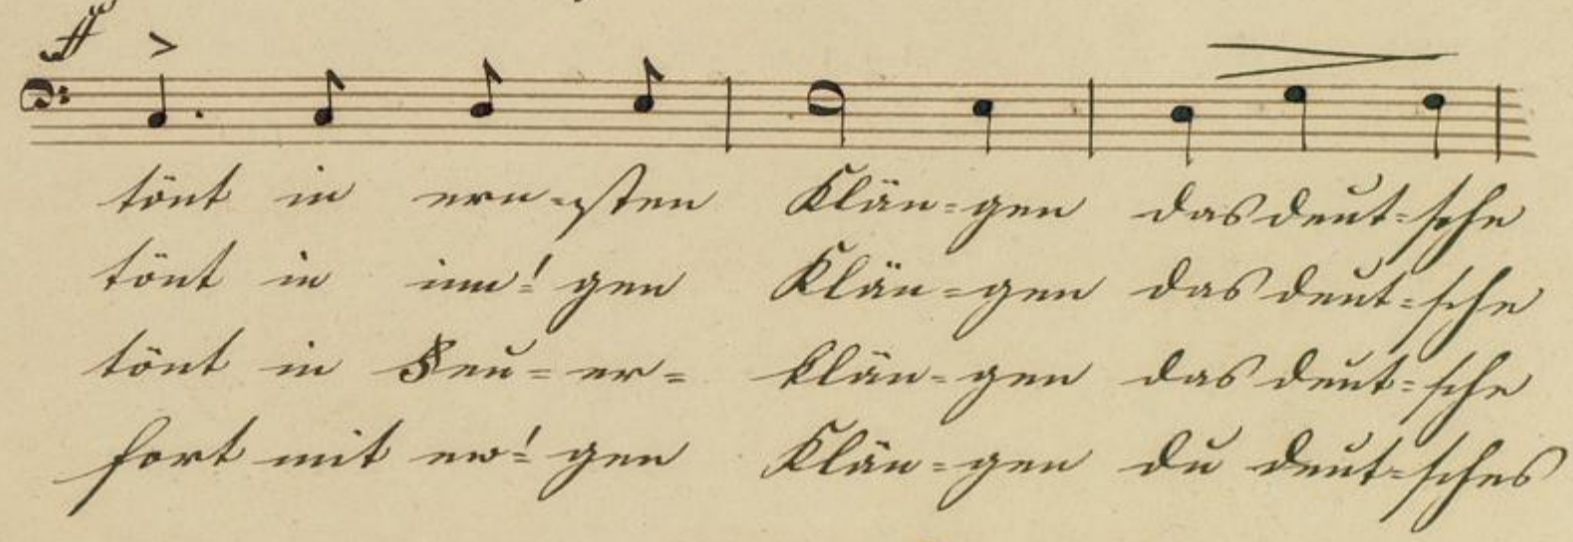 ff
tönt in ern-sten Klän-gen das deut-sche
tönt in inn'-gen Klän-gen das deut-sche
tönt in Feu-er-klän-gen das deut-sche
fort mit ew'-gen Klän-gen du deut-sches